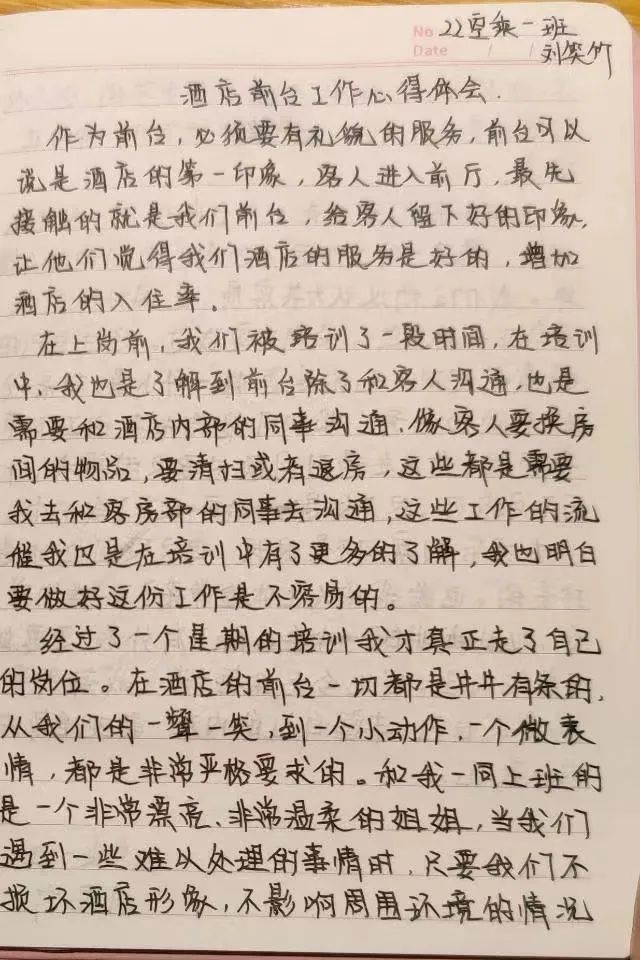 No 22空乘一班
Date / / 刘笑竹
酒店前台工作心得体会.
作为前台,必须要有礼貌的服务,前台可以
说是酒店的第一印象,客人进入前厅,最先
接触的就是我们前台,给客人留下好的印象,
让他们觉得我们酒店的服务是好的,增加
酒店的入住率.
在上岗前,我们被培训了一段时间,在培训
中,我也是了解到前台除了和客人沟通,也是
需要和酒店内部的同事沟通.像客人要换房
间的物品,要清扫或者退房,这些都是需要
我去和客房部的同事去沟通,这些工作的流
程我也是在培训中有了更多的了解,我也明白
要做好这份工作是不容易的。
经过了一个星期的培训我才真正走了自己
的岗位。在酒店的前台一切都是井井有条的,
从我们的一颦一笑,到一个小动作,一个微表
情,都是非常严格要求的。和我一同上班的
是一个非常漂亮、非常温柔的姐姐,当我们
遇到一些难以处理的事情时,只要我们不
损坏酒店形象,不影响周围环境的情况